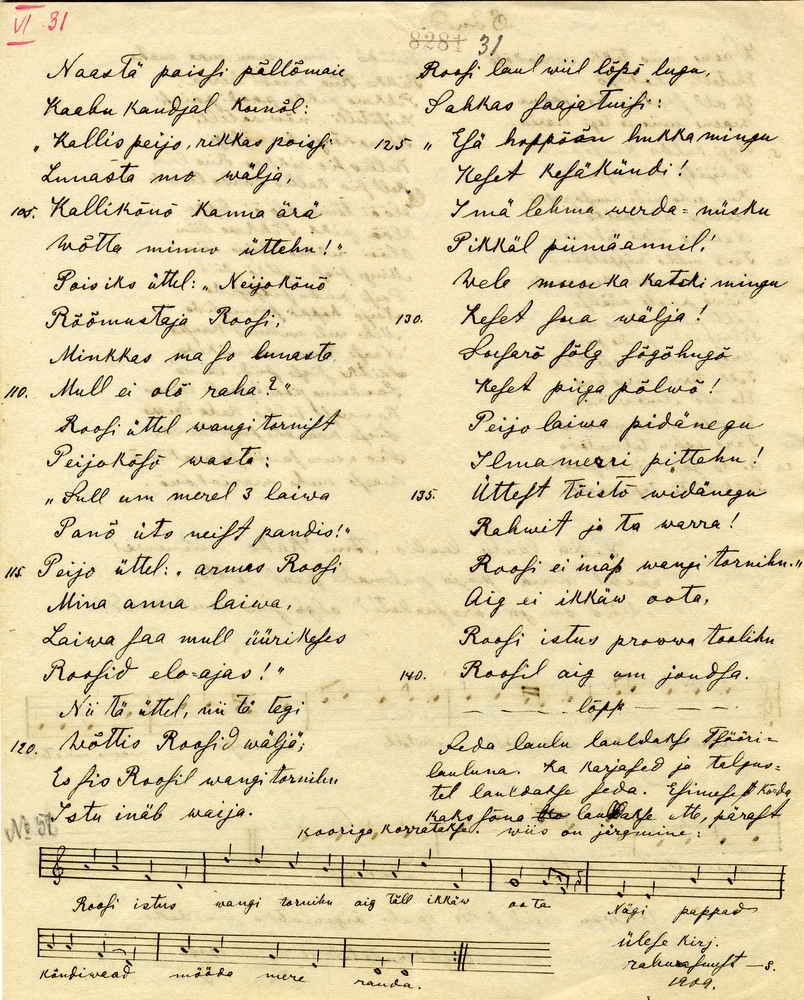 VI 31
8281 31
Naastä paissi põllõmaie
Kaabu kandjal koenõl:
„Kallis peijo, rikkas poissi
Lunasta mo wälja,
105. Kallikõnõ kanna ärä
Wõtta minno üttehu!"
Poisiks üttel: „Neijokõnõ
Rõõmustaja Roosi,
Minkkas ma so lunasta
110. Mull ei olõ raha?"
Roosi üttel wangitornist
Peijokõsõ wasta:
„Sull um merel 3 laiwa
Panõ üts neist pandis!"
115. Peijo üttel: „armas Roosi
Mina anna laiwa,
Laiwa saa mull üürikeses
Roosid elo-ajas!"
Nii tä üttel, nii tä tegi
120. Wõttis Roosid wäljä;
Es sis Roosil wangitornihu
Istu inäb waija.
Roosi laul wiil lõpõ lugu,
Sahkas saajatuisi:
125 „Esä hoppõõn hukka mingu
Keset kesäkündi!
Imä lehma werda-nüsku
Pikkäl piimäannil!
Wele mõõka katski mingu
130. Keset sua wälja!
Sõsarõ sõlg sõgõhugõ
Keset piiga põlwõ!
Peijo laiwa pidänegu
Ilmamerri pittehu!
135. Üttest tõistõ widänegu
Rahwit ja ta warra!
Roosi ei inäp wangitornihu."
Aig ei ikkäw oota,
Roosi istus prowwa toolihu
140. Roosil aig um jondsa.
— — — lõpp — — —
Seda laulu lauldakse Tsõõri-
lauluna. Ka karjased ja talgus-
tel lauldakse seda. Esimesed korda
kaks sõna lauldakse ette, pärast
kooriga korratakse. wiis on järgmine:
No 31
Roosi istus wangi tornihu aig täll ikkäw oota Nägi pappad
kõndiwaad mööda mere randa.
ülese kirj.
rahwasuust — s.
1909.